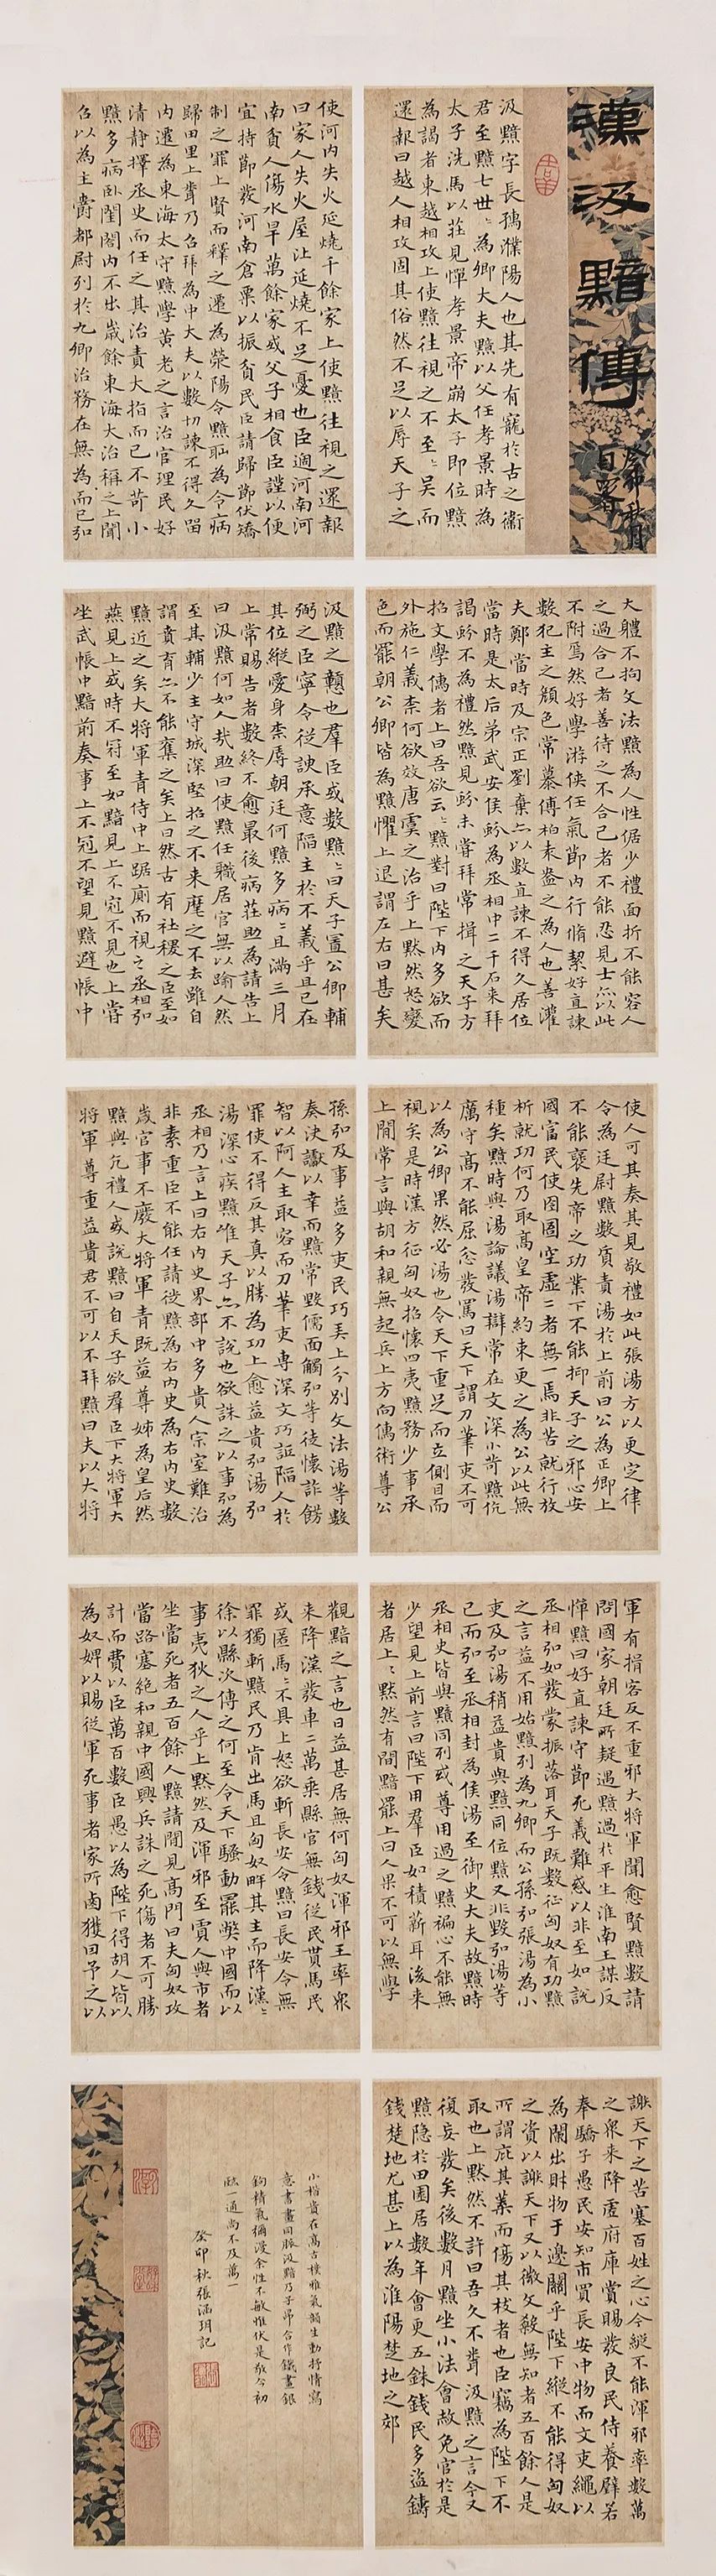 漢汲黯傳
癸卯秋月
汲黯字長孺濮陽人也其先有寵於古之衞
君至黯七世〻為卿大夫黯以父任孝景時為
太子洗馬以莊見憚孝景帝崩太子即位黯
為謁者東越相攻上使黯往視之不至〻吳而
還報曰越人相攻固其俗然不足以辱天子之
使河內失火延燒千餘家上使黯往視之還報
曰家人失火屋比延燒不足憂也臣過河南河
南貧人傷水旱萬餘家或父子相食臣謹以便
宜持節發河南倉粟以振貧民臣請歸節伏矯
制之罪上賢而釋之遷為滎陽令黯恥為令病
歸田里上聞乃召拜為中大夫以數切諫不得久留
內遷為東海太守黯學黃老之言治官理民好
清靜擇丞史而任之其治責大指而已不苛小
黯多病臥閨閤內不出歲餘東海大治稱之上聞
召以為主爵都尉列於九卿治務在無為而已弘
大體不拘文法黯為人性倨少禮面折不能容人
之過合己者善待之不合己者不能忍見士亦以此
不附焉然好學游俠任氣節內行脩絜好直諫
數犯主之顏色常慕傅柏袁盎之為人也善灌
夫鄭當時及宗正劉棄亦以數直諫不得久居位
當時是太后弟武安侯蚡為丞相中二千石来拜
謁蚡不為禮然黯見蚡未嘗拜常揖之天子方
招文學儒者上曰吾欲云〻黯對曰陛下內多欲而
外施仁義柰何欲效唐虞之治乎上默然怒變
色而罷朝公卿皆為黯懼上退謂左右曰甚矣
汲黯之戇也羣臣或數黯〻曰天子置公卿輔
弼之臣寧令從諛承意陷主於不義乎且已在
其位縱愛身柰辱朝廷何黯多病〻且滿三月
上常賜告者數終不愈最後病莊助為請告上
曰汲黯何如人哉助曰使黯任職居官無以踰人然
至其輔少主守城深堅招之不来麾之不去雖自
謂賁育亦不能奪之矣上曰然古有社稷之臣至如
黯近之矣大將軍青侍中上踞廁而視之丞相弘
燕見上或時不冠至如黯見上不冠不見也上嘗
坐武帳中黯前奏事上不冠不望見黯避帳中
使人可其奏其見敬禮如此張湯方以更定律
令為廷尉黯數質責湯於上前曰公為正卿上
不能襃先帝之功業下不能抑天子之邪心安
國富民使囹圄空虛二者無一焉非苦就行放
析就功何乃取高皇帝約束更之為公以此無
種矣黯時與湯論議湯辯常在文深小苛黯伉
厲守高不能屈忿發罵曰天下謂刀筆吏不可
以為公卿果然必湯也令天下重足而立側目而
視矣是時漢方征匈奴招懷四夷黯務少事承
上閒常言與胡和親無起兵上方向儒術尊公
孫弘及事益多吏民巧美上分別文法湯等數
奏決讞以幸而黯常毀儒面觸弘等徒懷詐飾
智以阿人主取容而刀筆吏專深文巧詆陷人於
罪使不得反其真以勝為功上愈益貴弘湯弘
湯深心疾黯惟天子亦不說也欲誅之以事弘為
丞相乃言上曰右內史界部中多貴人宗室難治
非素重臣不能任請徙黯為右內史為右內史數
歲官事不廢大將軍青既益尊姊為皇后然
黯與亢禮人或說黯曰自天子欲羣臣下大將軍大
將軍尊重益貴君不可以不拜黯曰夫以大將
軍有揖客反不重邪大將軍聞愈賢黯數請
問國家朝廷所疑遇黯過於平生淮南王謀反
憚黯曰好直諫守節死義難惑以非至如說
丞相弘如發蒙振落耳天子既數征匈奴有功黯
之言益不用始黯列為九卿而公孫弘張湯為小
吏及弘湯稍益貴與黯同位黯又非毀弘湯等
已而弘至丞相封為侯湯至御史大夫故黯時
丞相史皆與黯同列或尊用過之黯褊心不能無
少望見上前言曰陛下用羣臣如積薪耳後来
者居上〻默然有間黯罷上曰人果不可以無學
觀黯之言也日益甚居無何匈奴渾邪王率衆
来降漢發車二萬乘縣官無錢從民貰馬民
或匿馬〻不具上怒欲斬長安令黯曰長安令無
罪獨斬黯民乃肯出馬且匈奴畔其主而降漢〻
徐以縣次傳之何至令天下騷動罷弊中國而以
事夷狄之人乎上默然及渾邪至賈人與市者
坐當死者五百餘人黯請閒見高門曰夫匈奴攻
當路塞絕和親中國興兵誅之死傷者不可勝
計而費以臣萬百數臣愚以為陛下得胡人皆以
為奴婢以賜從軍死事者家所鹵獲因予之以
謝天下之苦塞百姓之心今縱不能渾邪率數萬
之衆来降虛府庫賞賜發良民侍養辟若
奉驕子愚民安知市買長安中物而文吏繩以
為闌出財物于邊關乎陛下縱不能得匈奴
之資以謝天下又以微文殺無知者五百餘人是
所謂庇其葉而傷其枝者也臣竊為陛下不
取也上默然不許曰吾久不聞汲黯之言今又
復妄發矣後數月黯坐小法會赦免官於是
黯隱於田園居數年會更五銖錢民多盜鑄
錢楚地尤甚上以為淮陽楚地之郊
小楷貴在高古樸雅氣韻生動抒情寫
意書畫同脈汲黯乃子昂合作鐵畫銀
鉤精氣彌漫余性不敏惟伏是敬今初
臨一通尚不及萬一
癸卯秋張涵玥記